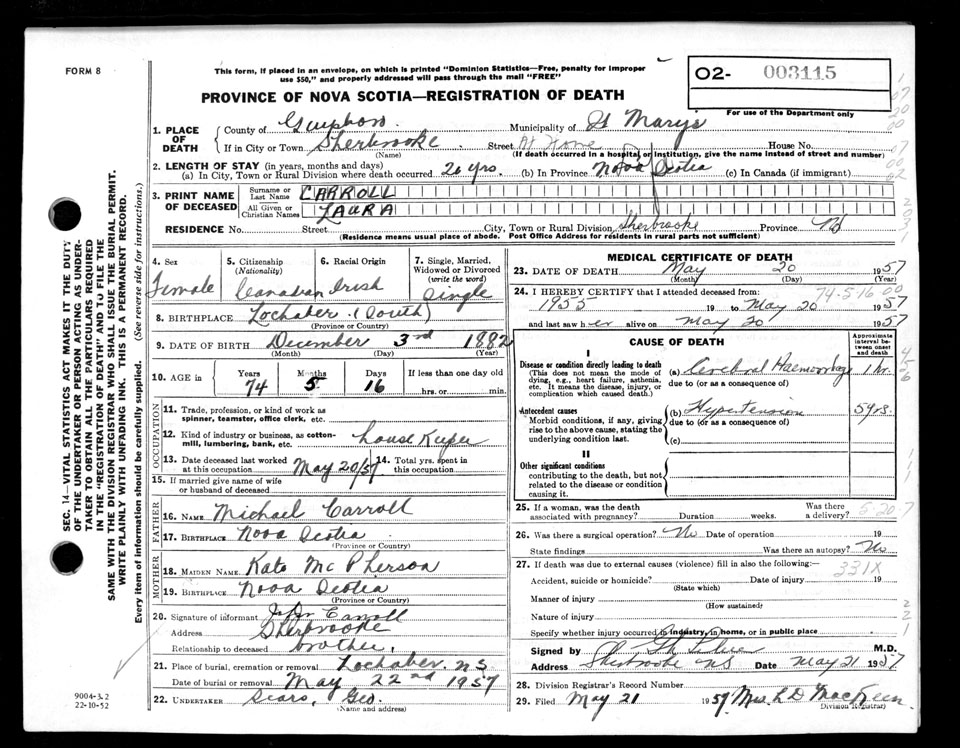 FORM 8
This form, if placed in an envelope, on which is printed "Dominion Statistics—Free, penalty for improper
use $50," and properly addressed will pass through the mail "FREE"
O2- 003115
For use of the Department only
PROVINCE OF NOVA SCOTIA—REGISTRATION OF DEATH
1. PLACE OF DEATH
County of Guysboro. Municipality of St Mary's
If in City or Town Sherbrooke Street At Home House No.
(Name) (If death occurred in a hospital or institution, give the name instead of street and number)
2. LENGTH OF STAY (in years, months and days)
(a) In City, Town or Rural Division where death occurred 26 yrs. (b) In Province Nova Scotia (c) In Canada (if immigrant)
3. PRINT NAME OF DECEASED
Surname or Last Name CARROLL
All Given or Christian Names LAURA
RESIDENCE No. Street City, Town or Rural Division Sherbrooke Province NS
(Residence means usual place of abode. Post Office Address for residents in rural parts not sufficient)
4. Sex Female
5. Citizenship (Nationality) Canadian
6. Racial Origin Irish
7. Single, Married, Widowed or Divorced (write the word) Single
8. BIRTHPLACE Lochaber (South)
(Province or Country)
9. DATE OF BIRTH December 3rd 1882
(Month) (Day) (Year)
10. AGE in Years 74 Months 5 Days 16 If less than one day old hrs. or min.
OCCUPATION
11. Trade, profession, or kind of work as
spinner, teamster, office clerk, etc.
12. Kind of industry or business, as cotton-
mill, lumbering, bank, etc. House Keeper
13. Date deceased last worked at this occupation May 20/57 14. Total yrs. spent in this occupation
15. If married give name of wife
or husband of deceased
FATHER
16. NAME Michael Carroll
17. BIRTHPLACE Nova Scotia
(Province or Country)
MOTHER
18. MAIDEN NAME Kate McPherson
19. BIRTHPLACE Nova Scotia
(Province or Country)
20. Signature of informant Carroll
Address Sherbrooke
Relationship to deceased brother.
21. Place of burial, cremation or removal Lochaber. NS
Date of burial or removal May 22nd 1957
22. UNDERTAKER Sears, Geo.
(Name and address)
MEDICAL CERTIFICATE OF DEATH
23. DATE OF DEATH May 20 1957
(Month) (Day) (Year)
24. I HEREBY CERTIFY that I attended deceased from: 74-5-16 00
1955 19 to May 20 1957
and last saw her alive on May 20 1957
CAUSE OF DEATH
Approximate interval between onset and death
I
Disease or condition directly leading to death (a) Cerebral Haemorrhage 1 hr.
(This does not mean the mode of dying, e.g., heart failure, asthenia, etc. It means the disease, injury, or complication which caused death.)
due to (or as a consequence of)
Antecedent causes (b) Hypertension 5 yrs.
Morbid conditions, if any, giving rise to the above cause, stating the underlying condition last.
due to (or as a consequence of)
(c)
II
Other significant conditions
contributing to the death, but not
related to the disease or condition
causing it.
25. If a woman, was the death associated with pregnancy? Duration weeks. Was there a delivery? 5-20-7
26. Was there a surgical operation? No Date of operation 19
State findings Was there an autopsy? No
27. If death was due to external causes (violence) fill in also the following:—
331X
Accident, suicide or homicide? Date of injury 19
(State which)
Manner of injury
(How sustained)
Nature of injury
Specify whether injury occurred in industry, in home, or in public place
Signed by M.D.
Address Sherbrooke NS Date May 21 1957
28. Division Registrar's Record Number
29. Filed May 21 1957 Mrs L D MacKeen.
Division Registrar)
SEC. 14—VITAL STATISTICS ACT MAKES IT THE DUTY
OF THE UNDERTAKER OR PERSON ACTING AS UNDER-
TAKER TO OBTAIN ALL THE PARTICULARS REQUIRED
IN THE "REGISTRATION OF DEATH" AND TO FILE THE
SAME WITH THE DIVISION REGISTRAR WHO SHALL ISSUE THE BURIAL PERMIT.
WRITE PLAINLY WITH UNFADING INK. THIS IS A PERMANENT RECORD.
Every item of information should be carefully supplied. (See reverse side for instructions.)
9004-3.2
22-10-52